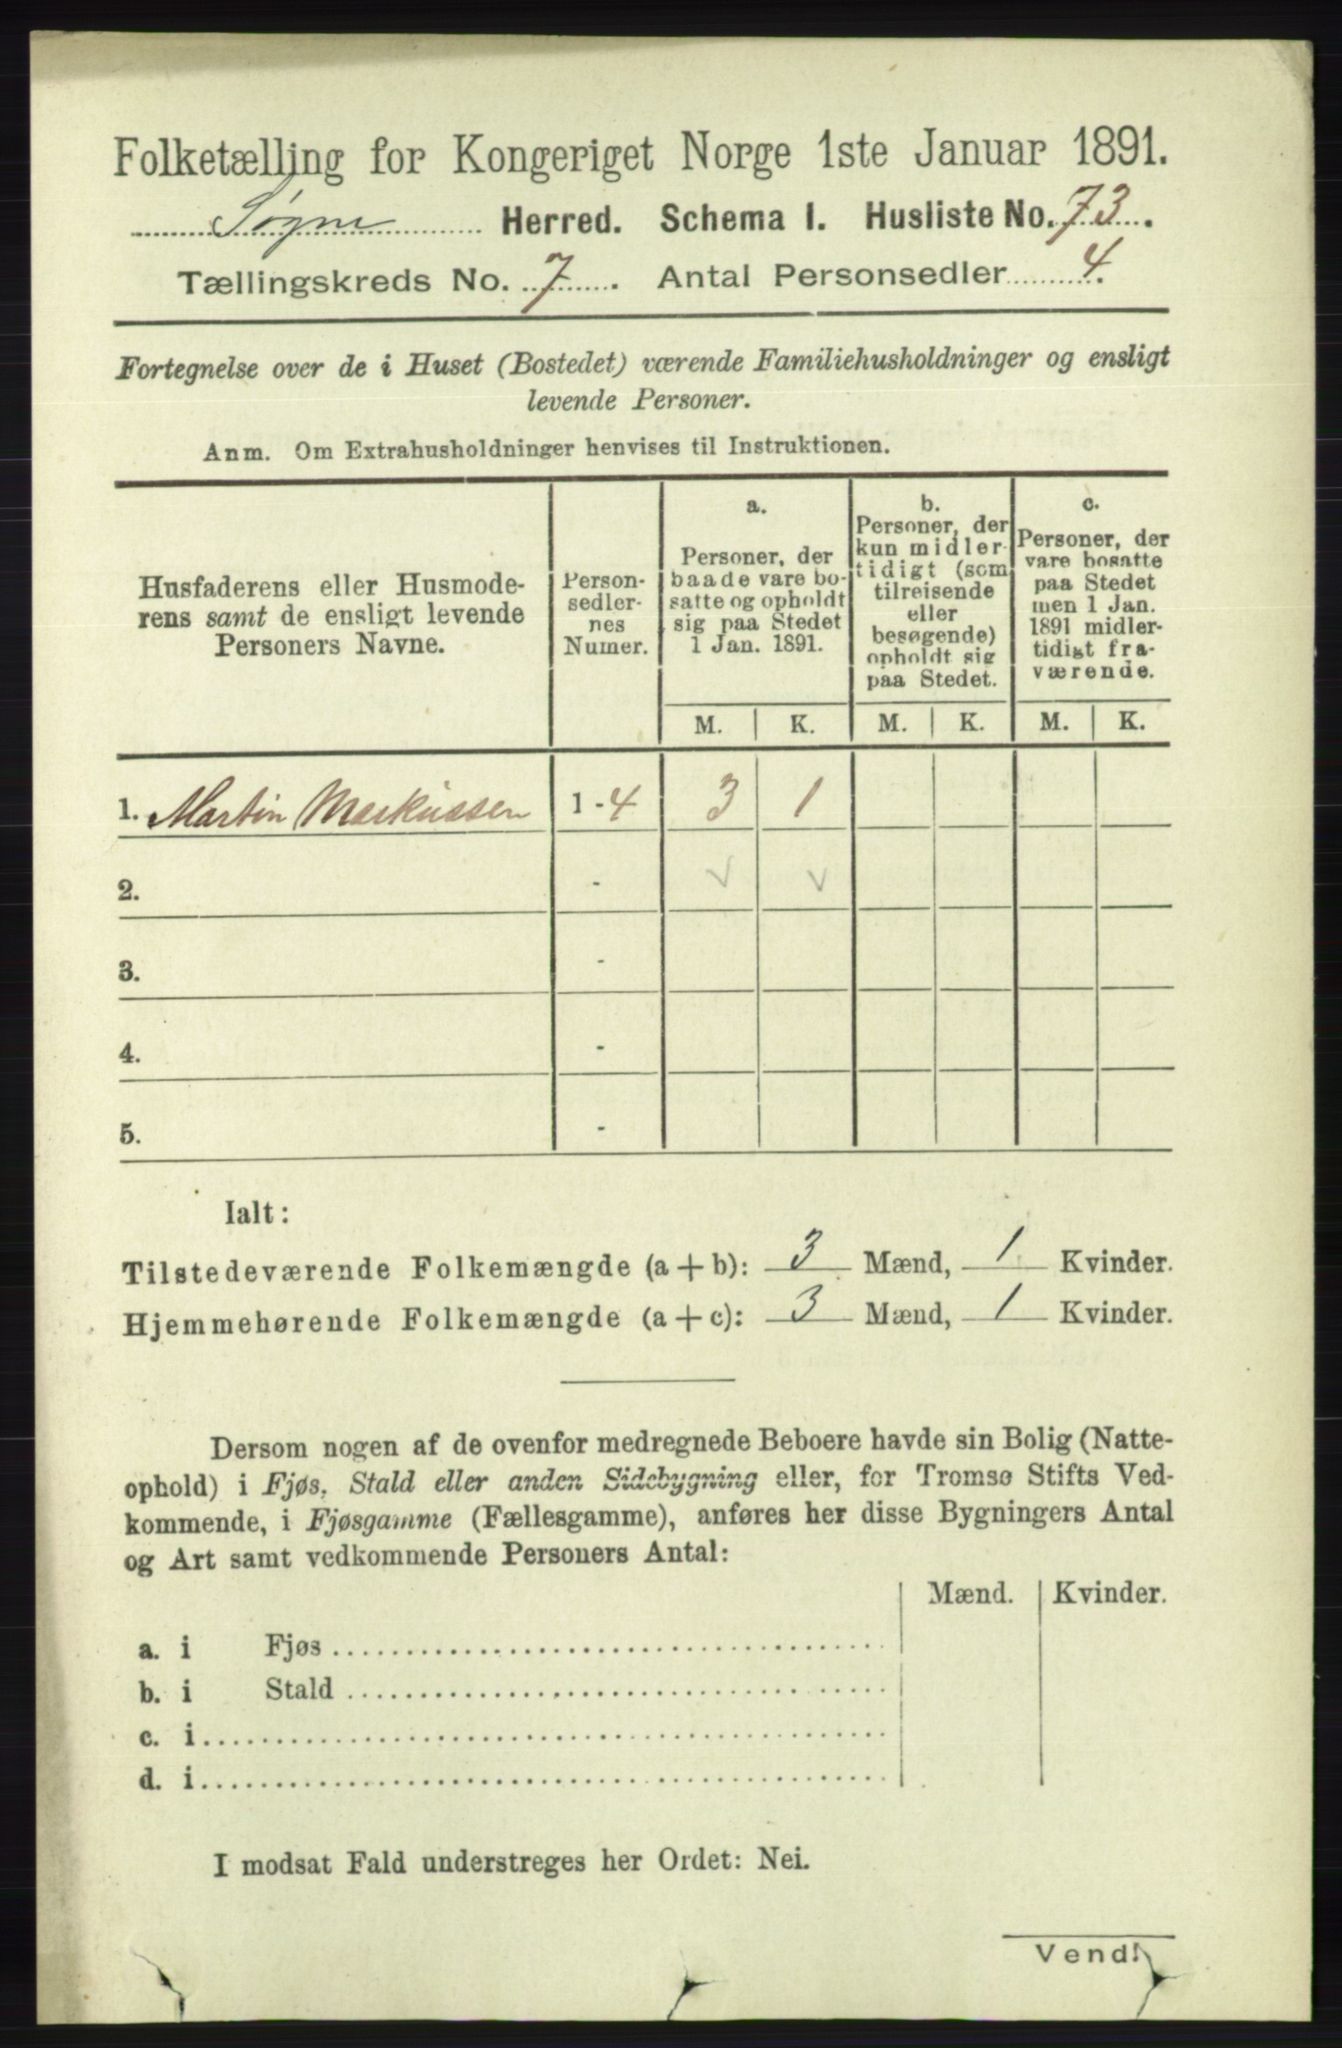 Folketælling for Kongeriget Norge 1ste Januar 1891.
Søgne Herred. Schema I. Husliste No. 73.
Tællingskreds No. 7. Antal Personsedler 4.
Fortegnelse over de i Huset (Bostedet) værende Familiehusholdninger og ensligt
levende Personer.
Anm. Om Extrahusholdninger henvises til Instruktionen.
Husfaderens eller Husmode-
rens samt de ensligt levende
Personers Navne.
Person-
sedler-
nes
Numer.
a.
Personer, der
baade vare bo-
satte og opholdt
sig paa Stedet
1 Jan. 1891.
b.
Personer, der
kun midler-
tidigt (som
tilreisende
eller
besøgende)
opholdt sig
paa Stedet.
c.
Personer, der
vare bosatte
paa Stedet
men 1 Jan.
1891 midler-
tidigt fra-
værende.
M. K. M. K. M. K.
1. Martin Markussen 1 - 4 3 1
2. -
3. -
4. -
5. -
Ialt:
Tilstedeværende Folkemængde (a + b): 3 Mænd, 1 Kvinder.
Hjemmehørende Folkemængde (a + c): 3 Mænd, 1 Kvinder.
Dersom nogen af de ovenfor medregnede Beboere havde sin Bolig (Natte-
ophold) i Fjøs, Stald eller anden Sidebygning eller, for Tromsø Stifts Ved-
kommende, i Fjøsgamme (Fællesgamme), anføres her disse Bygningers Antal
og Art samt vedkommende Personers Antal:
Mænd. Kvinder.
a. i Fjøs
b. i Stald
c. i
d. i
I modsat Fald understreges her Ordet: Nei.
Vend!